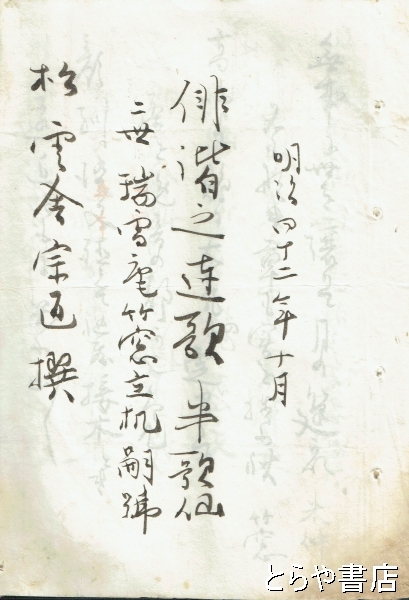 明治四十二年十月
俳諧之連歌 半歌仙
二世 瑞雪庵竹窓立机嗣号
松雲舎宗匠撰
とらや書店